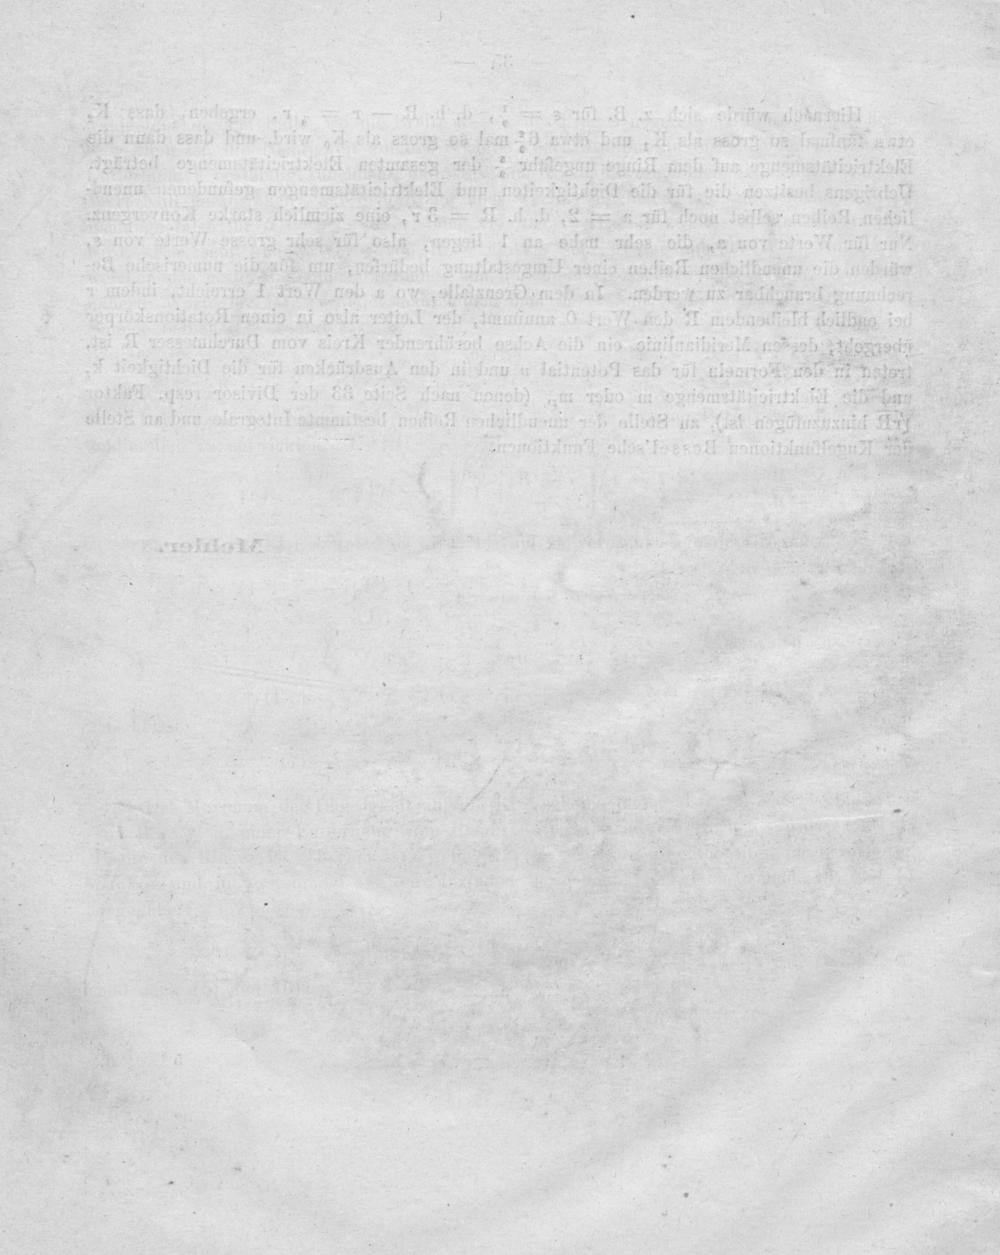 Hiernach würde sich z. B. für
etwa fünfmal so gross als K und etwa mal so gross als K wird, und dass dann die
Elektricitätsmenge auf dem Ringe ungefähr der gesamten Elektricitätsmenge beträgt.
Uebrigens besitzen die für die Dichtigkeiten und Elektricitätsmengen gefundenen unend-
lichen Reihen selbst noch für a = 2, d. h. R = 3 r, eine ziemlich starke Konvergenz.
Nur für Werte von a, die sehr nahe an 1 liegen, also für sehr grosse Werte von s,
würden die unendlichen Reihen einer Umgestaltung bedürfen, um für die numerische Be-
rechnung brauchbar zu werden. In dem Grenzfalle, wo a den Wert 1 erreicht, indem r
bei endlich bleibendem R den Wert 0 annimmt, der Leiter also in einen Rotationskörper
übergeht, dessen Meridianlinie ein die Achse berührender Kreis vom Durchmesser R ist,
treten in den Formeln für das Potential v und in den Ausdrücken für die Dichtigkeit k,
und die Elektricitätsmenge m oder (denen nach Seite 33 der Divisor resp. Faktor
hinzuzufügen ist), an Stelle der unendlichen Reihen bestimmte Integrale und an Stelle
der Kugelfunktionen Bessel'sche Funktionen.
Mehler.